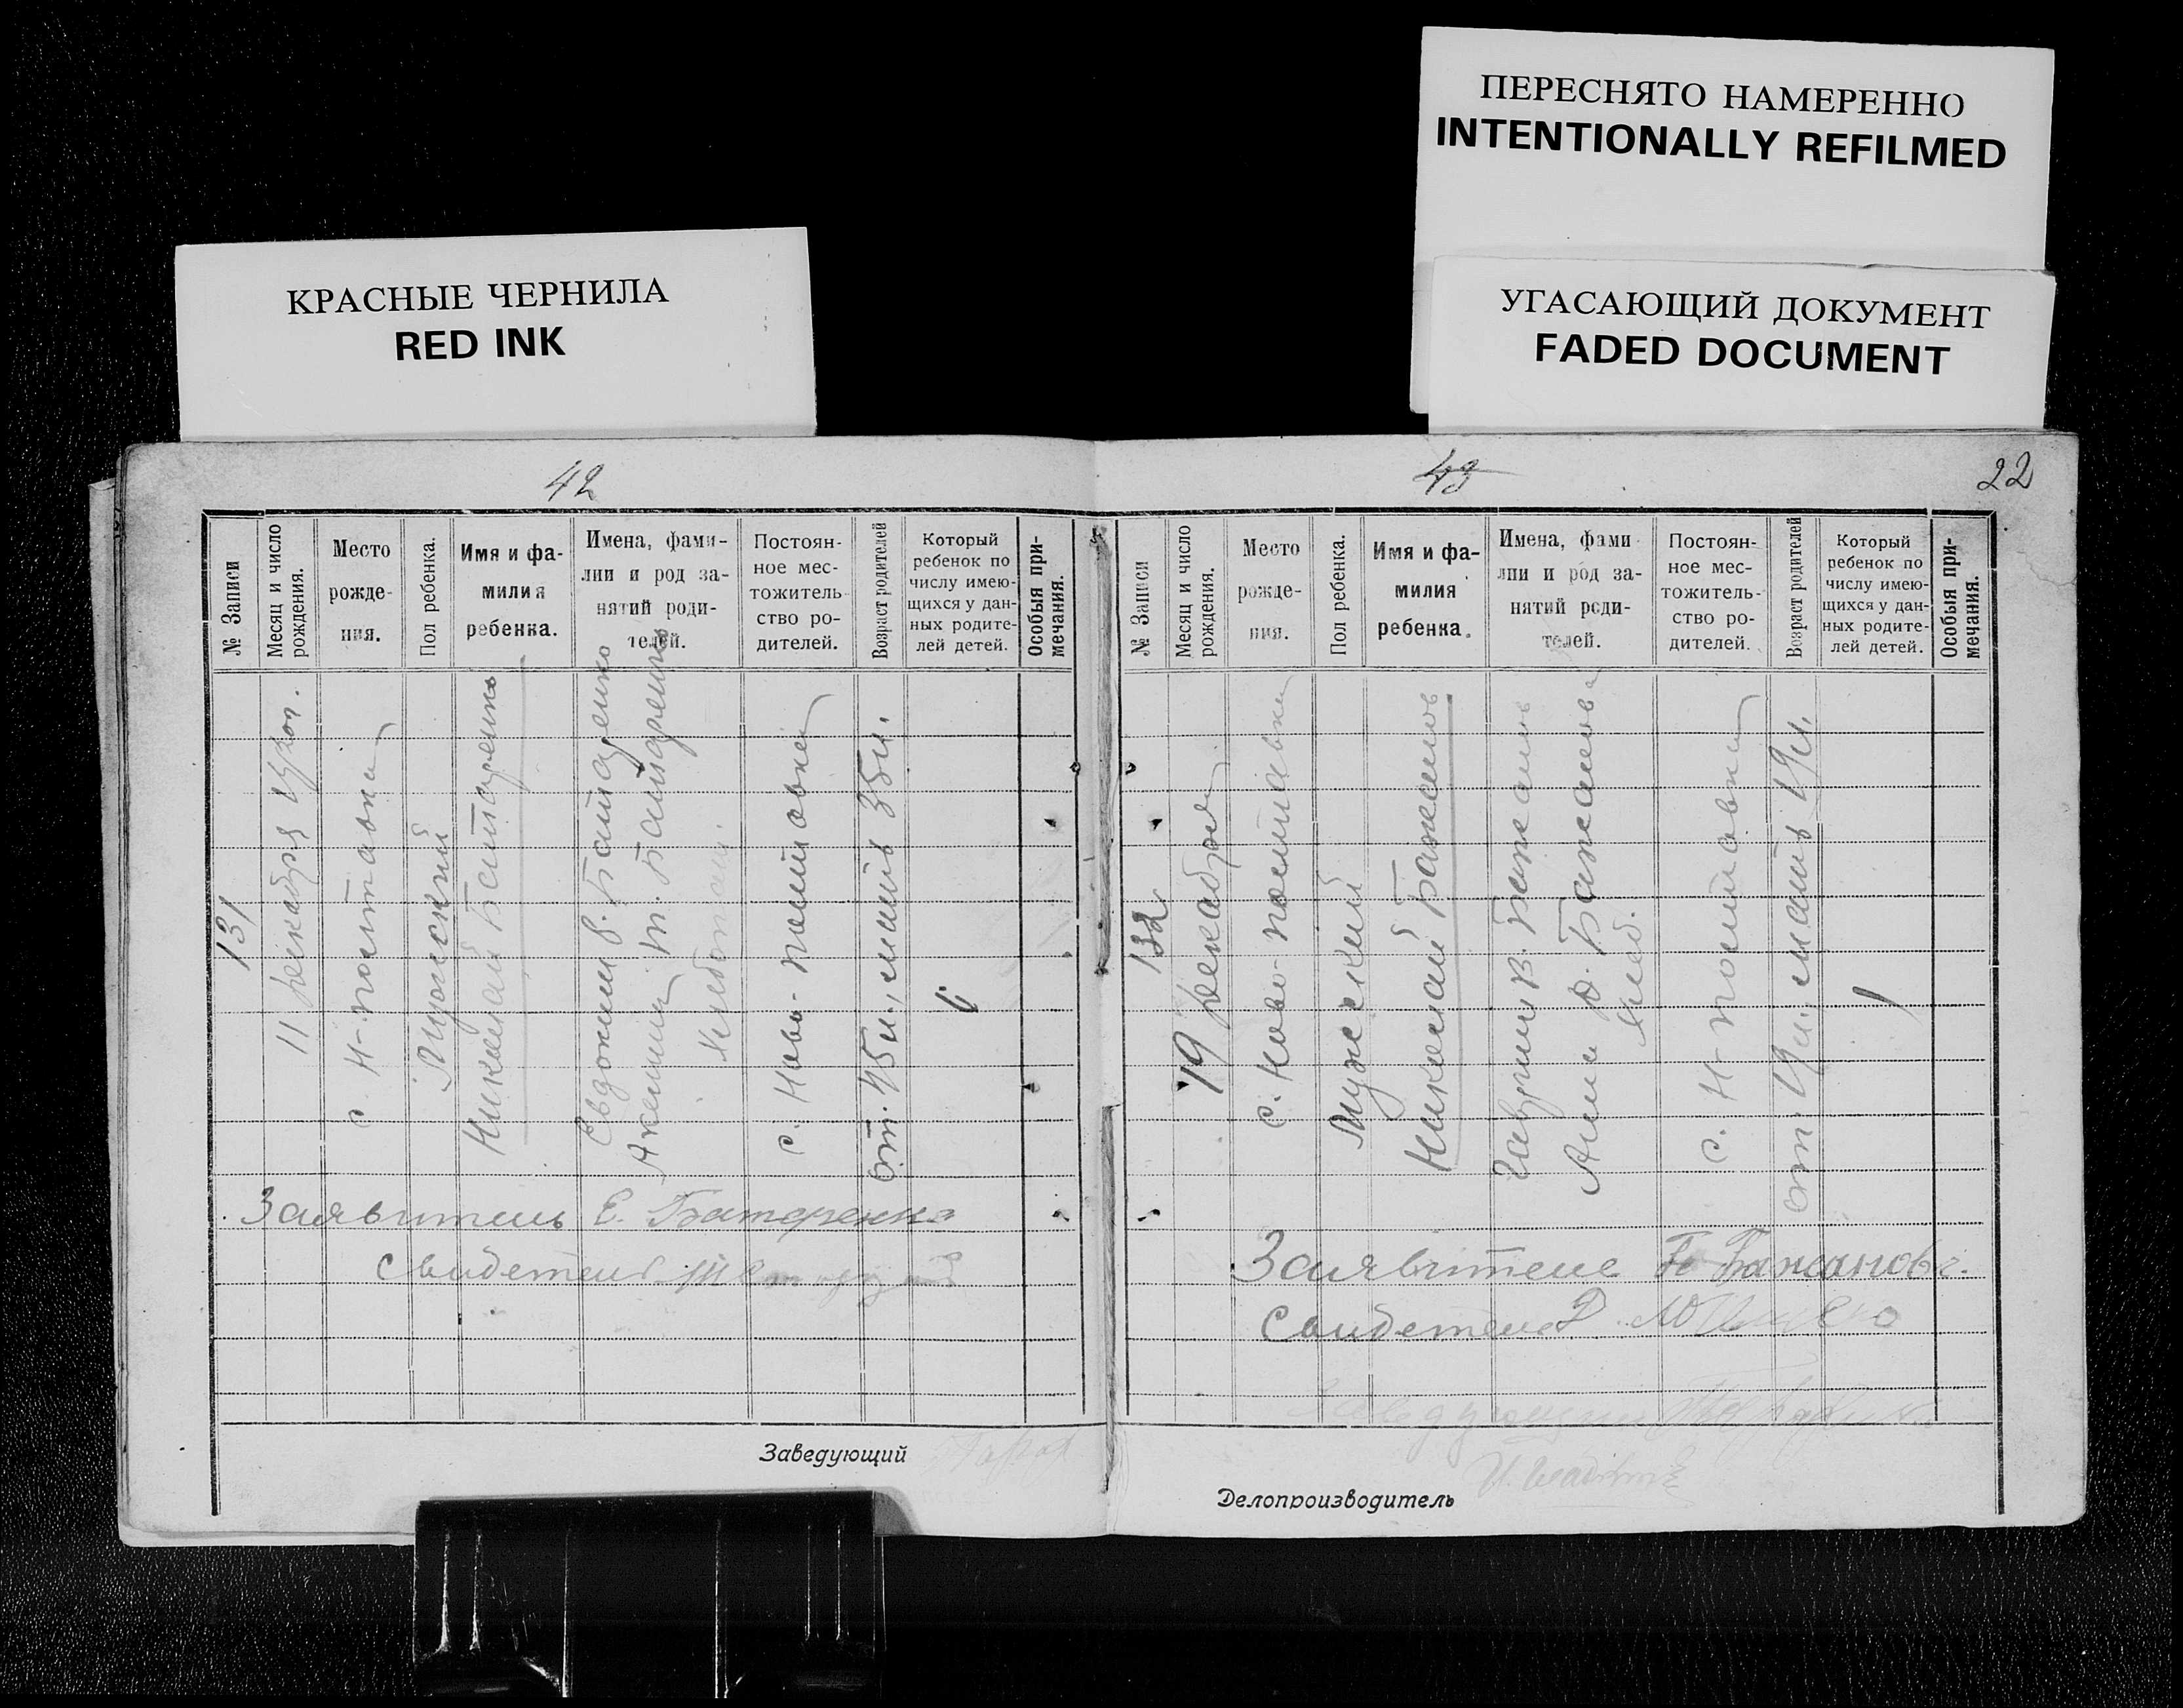 ПЕРЕСНЯТО НАМЕРЕННО
INTENTIONALLY REFILMED
КРАСНЫЕ ЧЕРНИЛА
RED INK
УГАСАЮЩИЙ ДОКУМЕНТ
FADED DOCUMENT
42
№ Записи
Месяц и число рождения.
Место рождения.
Пол ребенка.
Имя и фамилия ребенка.
Имена, фамилии и род занятий родителей.
Постоянное местожительство родителей.
Возраст родителей
Который ребенок по числу имеющихся у данных родителей детей.
Особыя примечания.
131
11 декабря
с. Н-Полтавки
Мужский
Николай Батаренко
Евдоким В. Батаренко
Т. Батаренко
с. Ново-Полтавки
от. 45 л., мать 35 л.
Заявитель Е. Батаренко
Свидетель
Заведующий
43
22
№ Записи
Месяц и число рождения.
Место рождения.
Пол ребенка.
Имя и фамилия ребенка.
Имена, фамилии и род занятий родителей.
Постоянное местожительство родителей.
Возраст родителей
Который ребенок по числу имеющихся у данных родителей детей.
Особыя примечания.
132
19 декабря
с. Ново-Полтавки
Мужский
Николай Бажанов
Гавриил В. Бажанов
Анна Ф. Бажанова
хлеб.
с. Н-Полтавки
1
Заявители Бажанов
Свидетели
Делопроизводитель